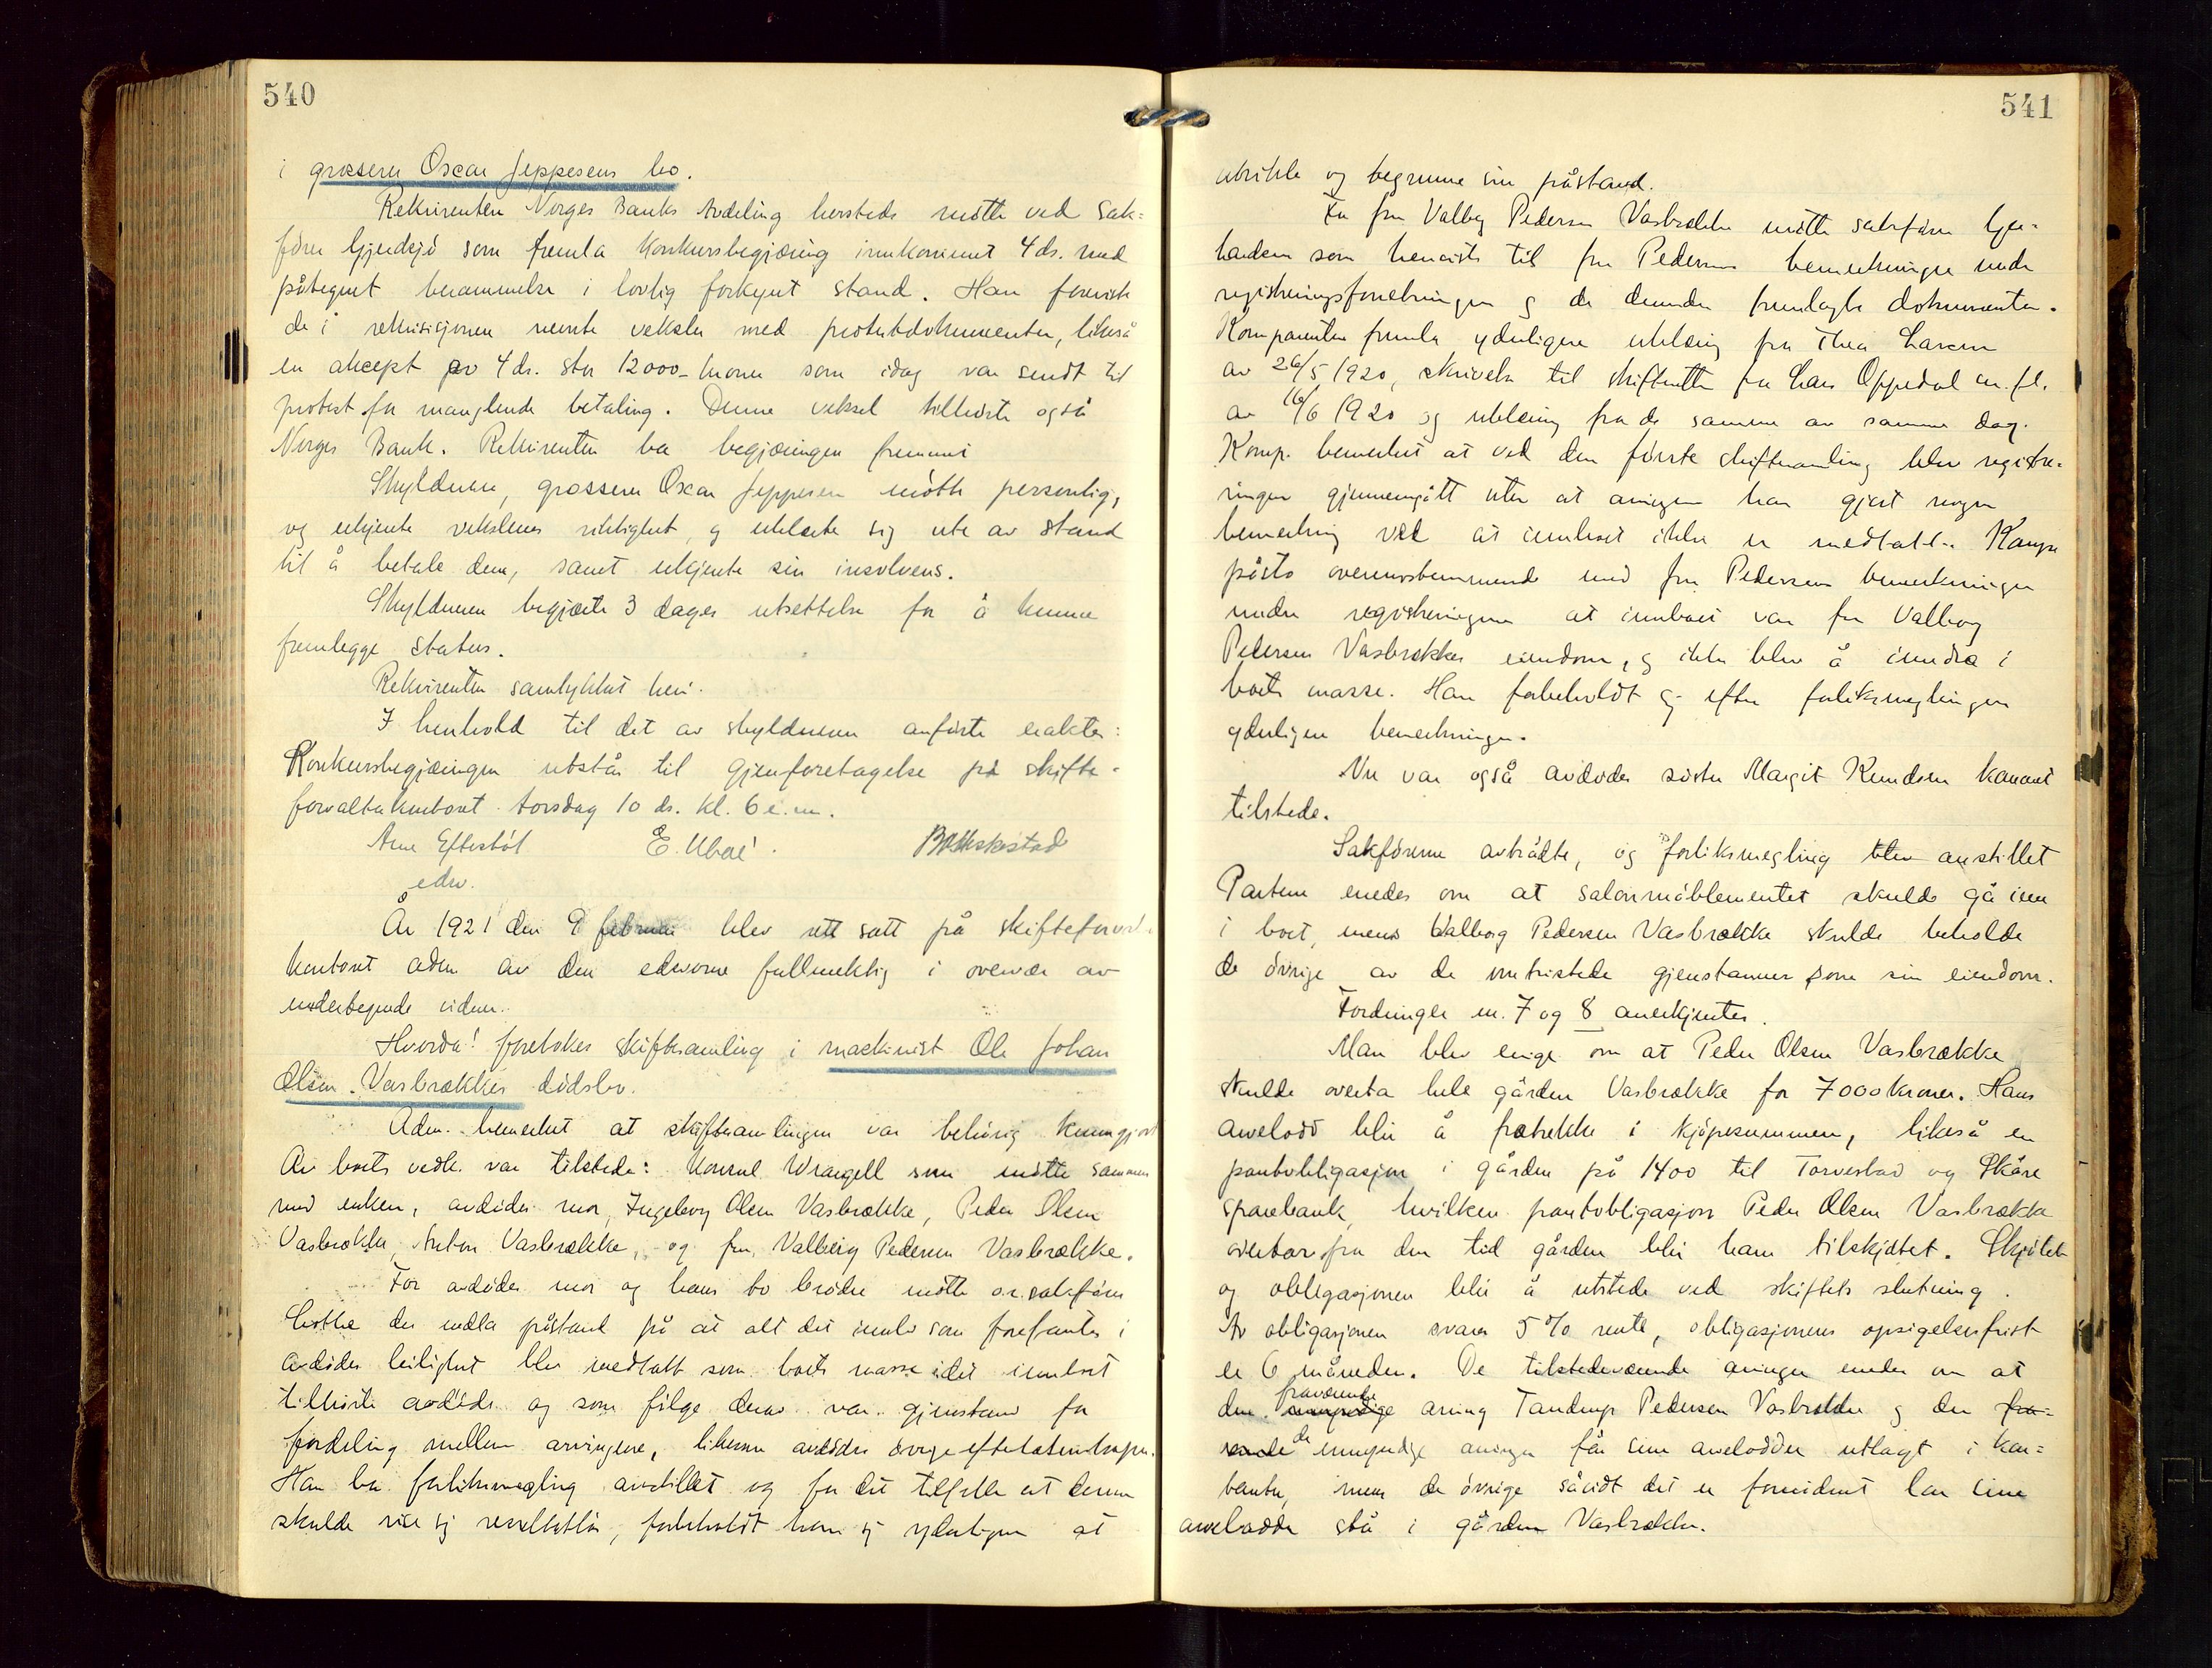 540
i grosserer Oscar Jeppesens bo.
Rekvirenten Norges Banks Avdeling herstede møtte ved sak=
fører Gjendsjø som fremla konkursbegjæring innkommet 4 ds. med
påtegnet berammelse i lovlig forkynt stand. Han foreviste
de i rekvisisjonen nevnte veksler med protestdokumenter, likeså
en aksept av 4 ds. stor 12000- kroner som idag var sendt til
protest for manglende betaling. Denne veksel tilhørte også
Norges Bank. Rekvirenten ba begjæringen fremmet
Skyldneren, grosserer Oscar Jeppesen møtte personlig,
og erkjente vekslenes riktighet, og erklærte sig ute av stand
til å betale dem, samt erkjente sin insolvens.
Skyldneren begjærte 3 dages utsettelse for å kunne
fremlegge status.
Rekvirenten samtykket heri.
I henhold til det av skyldneren anførte eraktes:
Konkursbegjæringen utstår til gjenforetagelse på skifte-
forvalterkontoret torsdag 10 ds. kl. 6 e.m.
Arne Eftestøl E. Ubøe
edsv.
År 1921 den 9 februar blev rett satt på skifteforv.
kontoret adm. av den edsvorne fullmektig i overvær av
undertegnede vidner.
Hvorda! foretokes skiftesamling i maskinist Ole Johan
Olsen Vasbrækkes dødsbo.
Adm. bemerket at skiftesamlingen var behørig kunngjort
Av boets vedk. var tilstede: Konsul Wrangell som møtte sammen
med enken, avdødes mor, Ingeborg Olsen Vasbrække, Peder Olsen
Vasbrække, Anton Vasbrække, og fru Valborg Pedersen Vasbrække.
For avdødes mor og hans to brødre møtte o.r.sakfører
Lothe der nedla påstand på at alt det innbo som forefantes i
avdødes leilighet blev medtatt som boets masse idet innboet
tilhørte avdøde og som følge derav var gjenstand for
fordeling mellem arvingene, likesom avdødes øvrige efterlatenskaper.
Han ba forliksmegling anstillet og for det tilfelle at denne
skulde vise sig resultatløs, forbeholdt han sig yderligere at
541
utvikle og begrunne sin påstand.
For fru Valborg Pedersen Vasbrække møtte sakfører
som henviste til fru Pedersens bemerkninger under
registreringsforretningen og de derunder fremlagte dokumenter.
Komparenten fremla yderligere erklæring fra Thea Larsen
av 26/5 1920, skrivelse til skifteretten fra Lars Oppedal m. fl.
av 16/6 1920 og erklæring fra de samme av samme dag.
Komp. bemerket at ved den første skiftesamling blev registre=
ringen gjennemgått uten at arvingene har gjort nogen
bemerkning ved at innboet ikke er medtatt. Komp.
påsto overensstemmende med fru Pedersens bemerkninger
under registreringen at innboet var fru Valborg
Pedersen Vasbrækkes eiendom, og ikke blev å inndra i
boets masse. Han forbeholdt sig efter forliksmeglingen
yderligere bemerkninger.
Nu var også avdødes søster Margit Knudsen
tilstede.
Sakførerne avtrådte, og forliksmegling blev anstillet
Partene enedes om at salonmøblementet skulde gå inn
i boet, mens Valborg Pedersen Vasbrække skulde beholde
de øvrige av de omtvistede gjenstanner som sin eiendom.
Fordringer nr. 7 og 8 anerkjentes.
Man blev enige om at Peder Olsen Vasbrække
skulde overta hele gården Vasbrække for 7000 kroner. Hans
arvelodd blir å fratrekke i kjøpesummen, likeså en
pantobligasjon i gården på 1400 til Torvestad og Skåre
sparebank, hvilken pantobligasjon Peder Olsen Vasbrække
overtar fra den tid gården blir ham tilskjøtet. Skjøtet
og obligasjonen blir å utstede ved skiftets slutning.
Av obligasjonen svares 5% rente, obligasjonens opsigelsesfrist
er 6 måneder. De tilstedeværende arvinger enedes om at
den fraværende arving Tandrup Pedersen Vasbrække og den
de umyndige arvinger får sine arvelodder utlagt i kon=
tanter, mens de øvrige såvidt det er fornødent lar sine
arvelodder stå i gården Vasbrække.